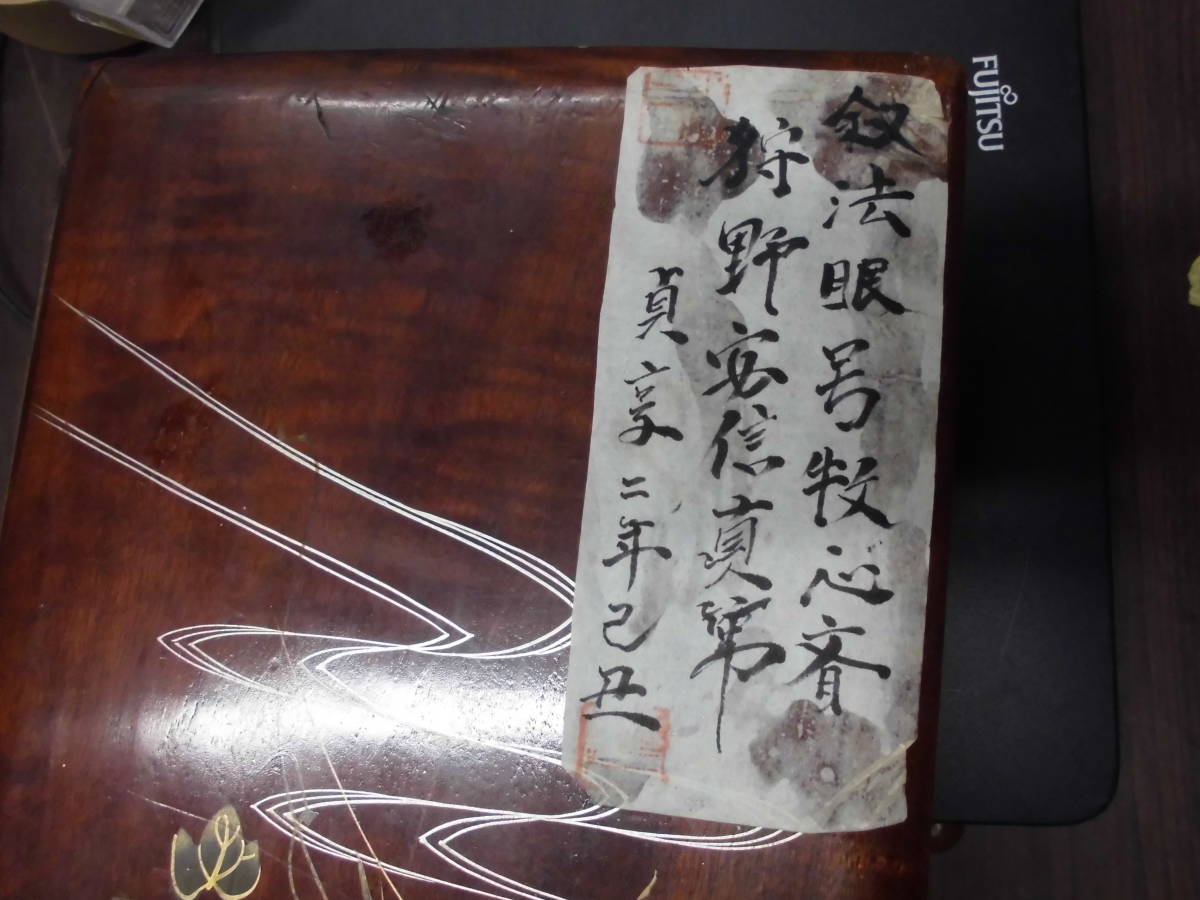 叙法眼号牧心斎
狩野安信真筆
貞享二年己丑
FUJITSU